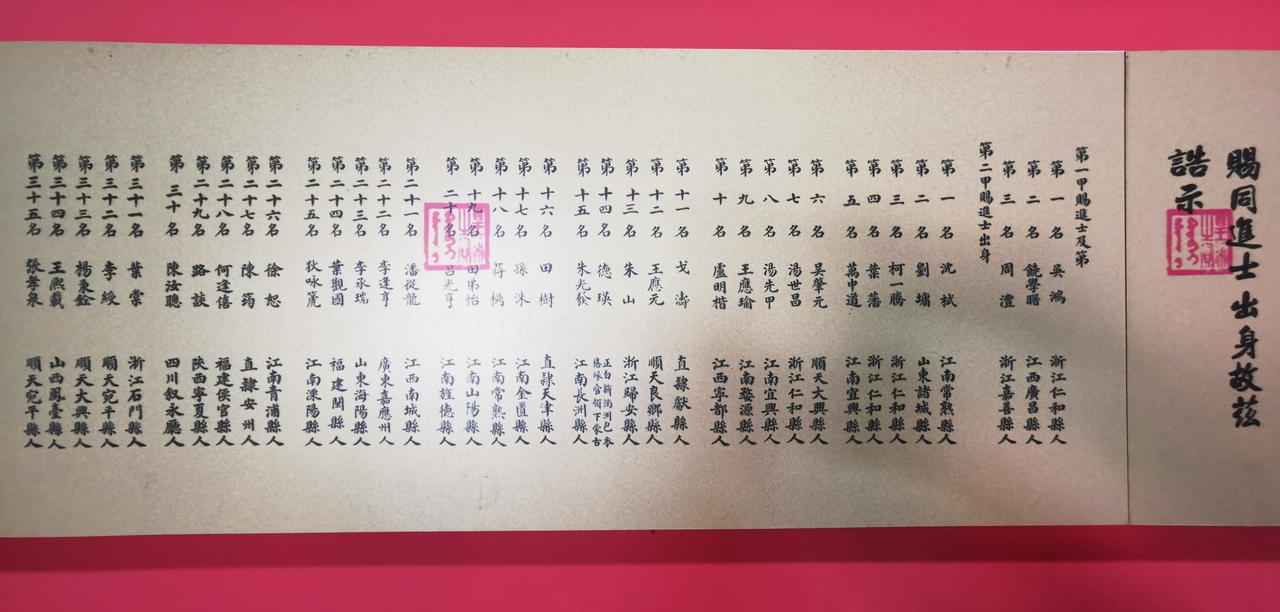 賜同進士出身故茲
誥示
第一甲賜進士及第
第一名 吳鴻 浙江仁和縣人
第二名 饒學曙 江西廣昌縣人
第三名 周澧 浙江嘉善縣人
第二甲賜進士出身
第一名 沈栻 江南常熟縣人
第二名 劉墉 山東諸城縣人
第三名 柯一騰 浙江仁和縣人
第四名 葉藩 浙江仁和縣人
第五名 萬中道 江南宜興縣人
第六名 吳肇元 順天大興縣人
第七名 湯世昌 浙江仁和縣人
第八名 湯先甲 江南宜興縣人
第九名 王應瑜 江南婺源縣人
第十名 盧明楷 江西寧都縣人
第十一名 戈濤 直隸獻縣人
第十二名 王應元 順天良鄉縣人
第十三名 朱山 浙江歸安縣人
第十四名 德瑛 正白旗滿洲包衣 佐領下蒙古
第十五名 朱光發 江南長洲縣人
第十六名 田樹 直隸天津縣人
第十七名 孫洙 江南金匱縣人
第十八名 蔣 江南常熟縣人
第十九名 怡 江南山陽縣人
第二十名 呂光亨 江南旌德縣人
第二十一名 潘從龍 江西南城縣人
第二十二名 李逢亨 廣東嘉應州人
第二十三名 李承瑞 山東海陽縣人
第二十四名 葉觀國 福建閩縣人
第二十五名 狄咏箎 江南溧陽縣人
第二十六名 徐恕 江南青浦縣人
第二十七名 陳筠 直隸安州人
第二十八名 何逢僖 福建侯官縣人
第二十九名 路談 陝西寧夏縣人
第三十名 陳汝聰 四川叙永廳人
第三十一名 葉棠 浙江石門縣人
第三十二名 李綬 順天宛平縣人
第三十三名 楊秉銓 順天大興縣人
第三十四名 王熙載 山西鳳臺縣人
第三十五名 張孝泉 順天宛平縣人